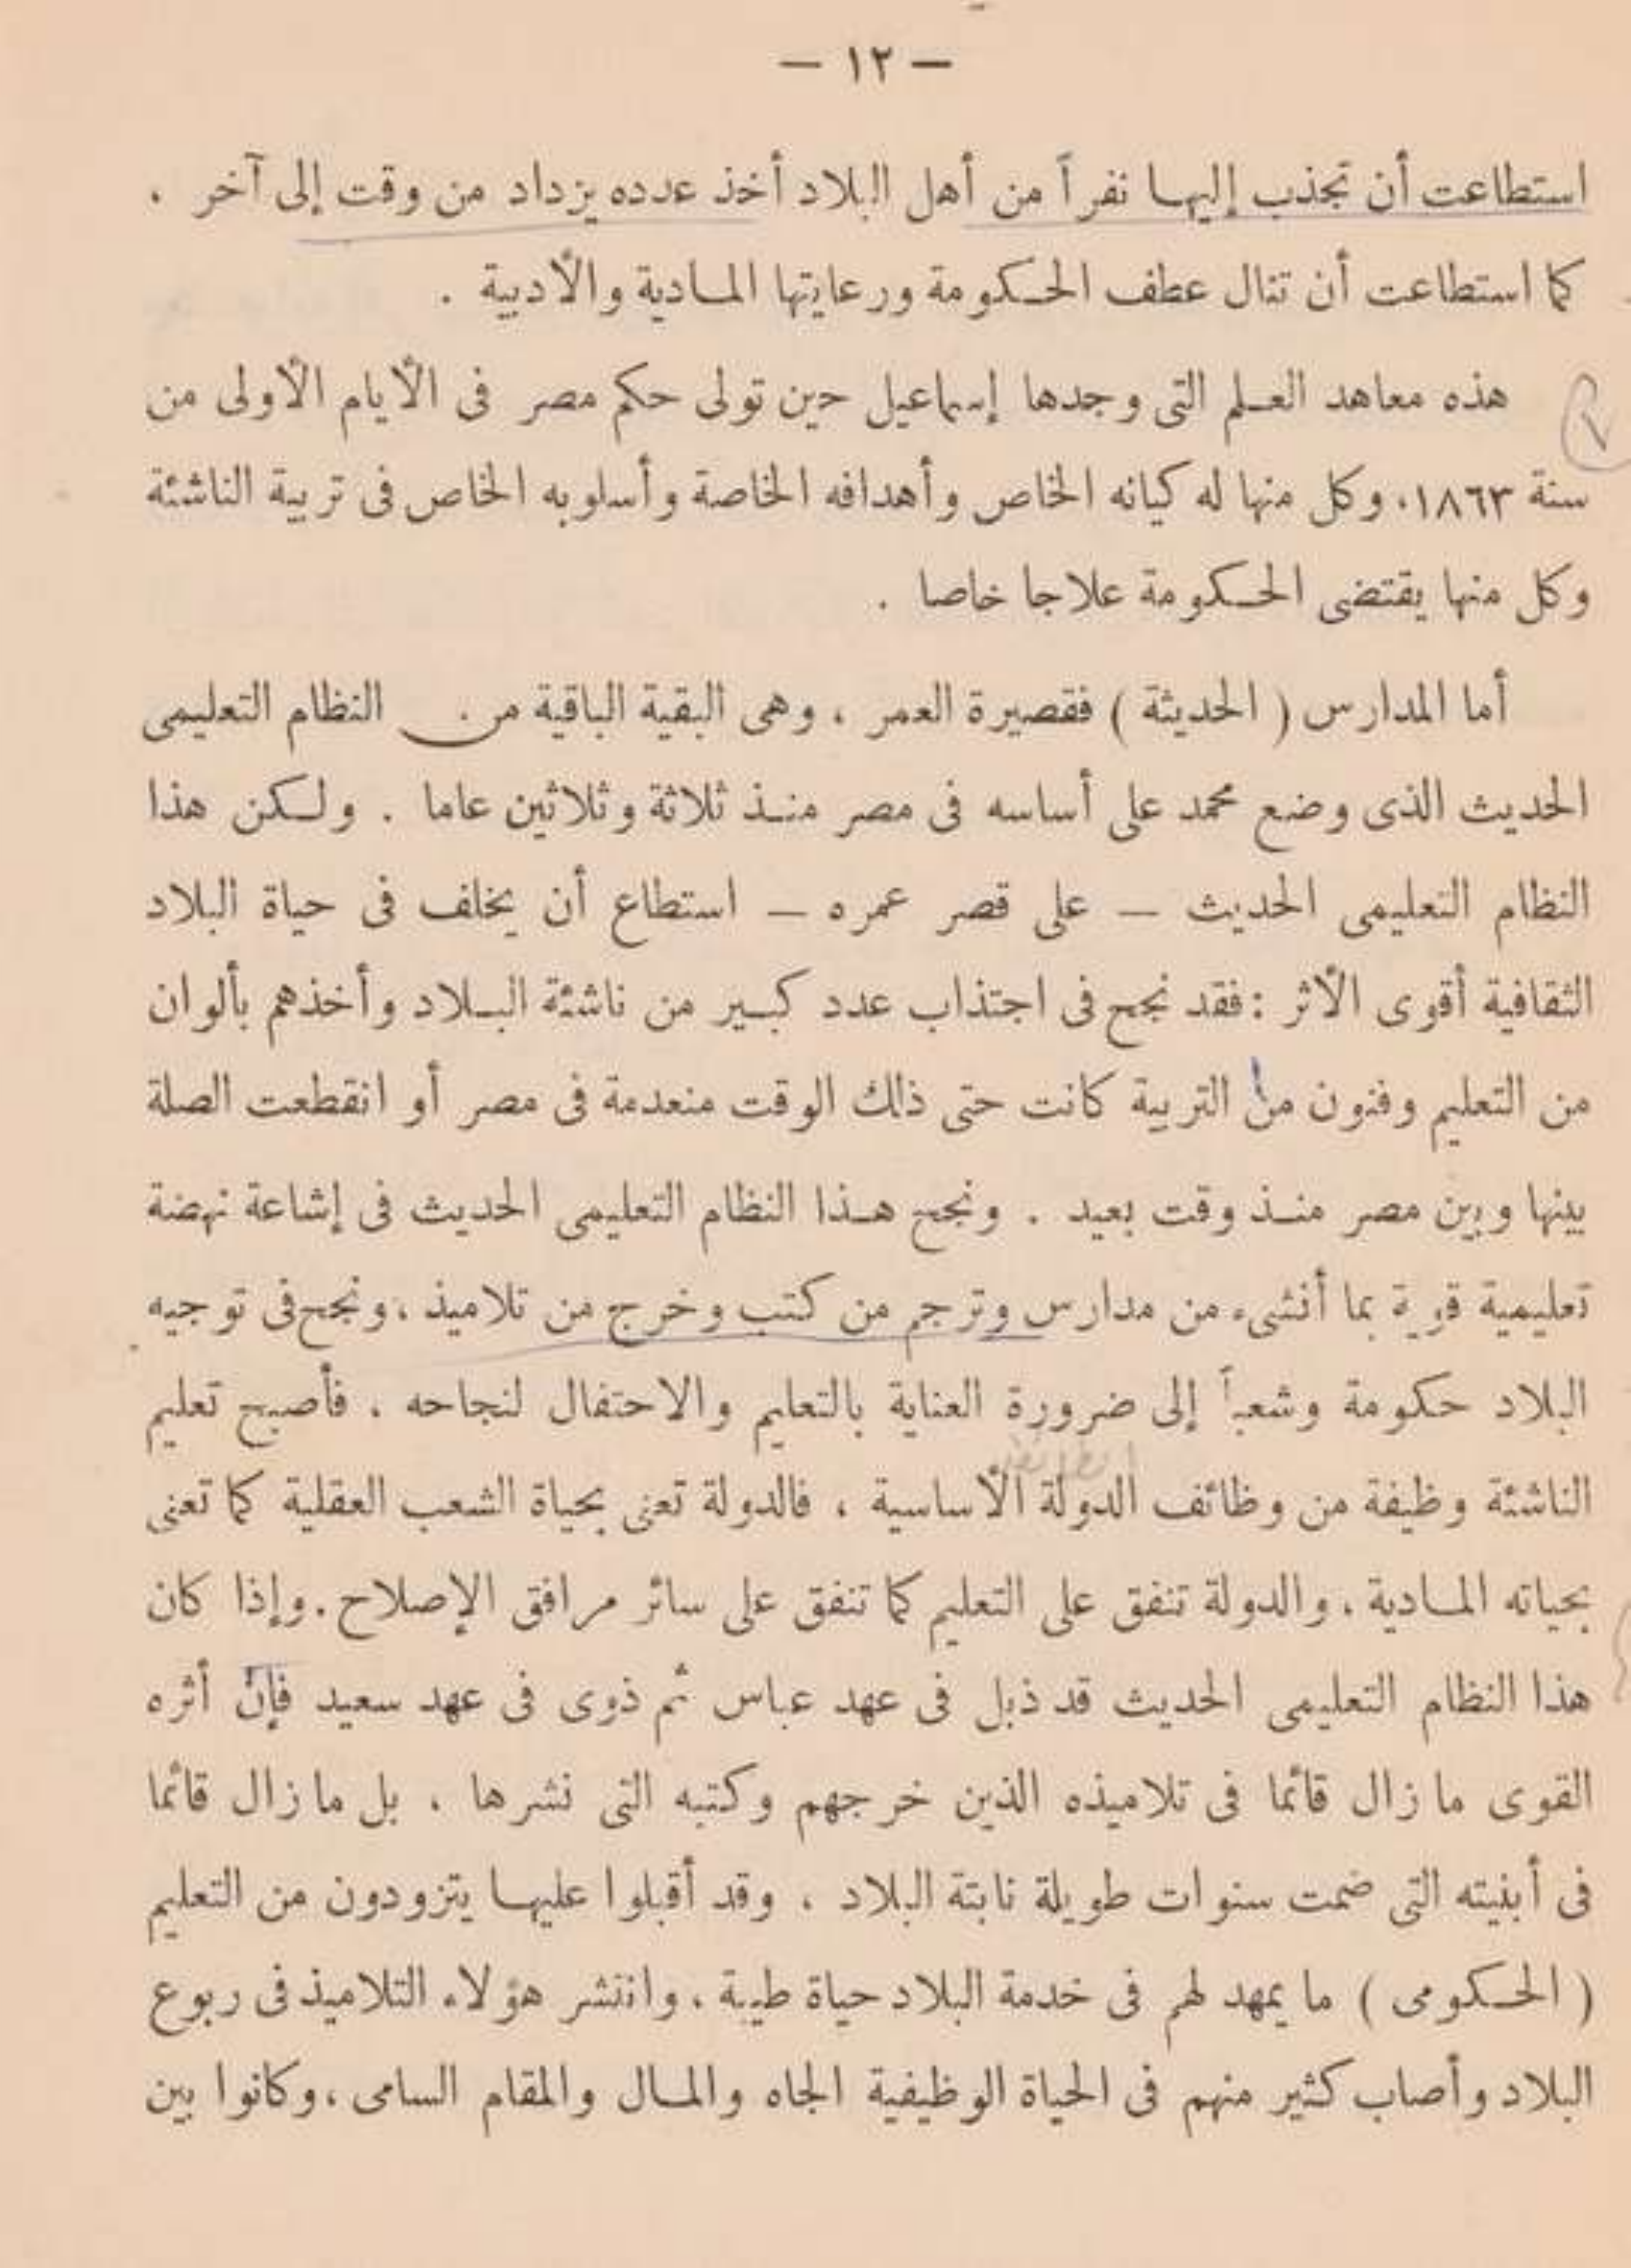 — ١٢ —
استطاعت أن تجذب إليها نفراً من أهل البلاد أخذ عدده يزداد من وقت إلى آخر .
كما استطاعت أن تنال عطف الحكومة ورعايتها المادية والأدبية .
هذه معاهد العلم التى وجدها إسماعيل حين تولى حكم مصر فى الأيام الأولى من
سنة ١٨٦٣، وكل منها له كيانه الخاص وأهدافه الخاصة وأسلوبه الخاص فى تربية الناشئة
وكل منها يقتضى الحكومة علاجا خاصا .
أما المدارس ( الحديثة ) فقصيرة العمر ، وهى البقية الباقية من النظام التعليمى
الحديث الذى وضع محمد على أساسه فى مصر منذ ثلاثة وثلاثين عاما . ولكن هذا
النظام التعليمى الحديث — على قصر عمره — استطاع أن يخلف فى حياة البلاد
الثقافية أقوى الأثر : فقد نجح فى اجتذاب عدد كبير من ناشئة البلاد وأخذهم بألوان
من التعليم وفنون من التربية كانت حتى ذلك الوقت منعدمة فى مصر أو انقطعت الصلة
بينها وبين مصر منذ وقت بعيد . ونجح هذا النظام التعليمى الحديث فى إشاعة نهضة
تعليمية قوية بما أنشىء من مدارس وترجم من كتب وخرج من تلاميذ ، ونجح فى توجيه
البلاد حكومة وشعباً إلى ضرورة العناية بالتعليم والاحتفال لنجاحه . فأصبح تعليم
الناشئة وظيفة من وظائف الدولة الأساسية ، فالدولة تعنى بحياة الشعب العقلية كما تعنى
بحياته المادية ، والدولة تنفق على التعليم كما تنفق على سائر مرافق الإصلاح . وإذا كان
هذا النظام التعليمى الحديث قد ذبل فى عهد عباس ثم ذوى فى عهد سعيد فإن أثره
القوى ما زال قائما فى تلاميذه الذين خرجهم وكتبه التى نشرها ، بل ما زال قائما
فى أبنيته التى ضمت سنوات طويلة نابتة البلاد ، وقد أقبلوا عليها يتزودون من التعليم
( الحكومى ) ما يمهد لهم فى خدمة البلاد حياة طيبة ، وانتشر هؤلاء التلاميذ فى ربوع
البلاد وأصاب كثير منهم فى الحياة الوظيفية الجاه والمال والمقام السامى ، وكانوا بين